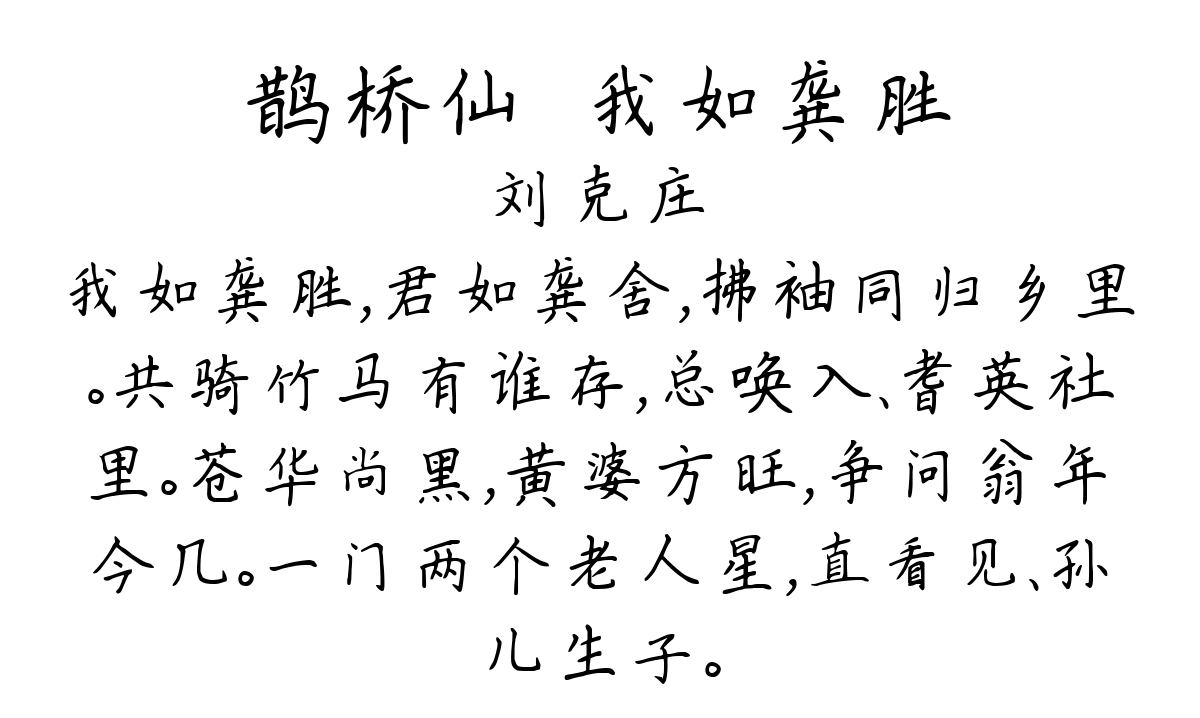 鹊桥仙 我如龚胜
刘克庄
我如龚胜,君如龚舍,拂袖同归乡里
。共骑竹马有谁存,总唤入、耆英社
里。苍华尚黑,黄婆方旺,争问翁年
今几。一门两个老人星,直看见、孙
儿生子。